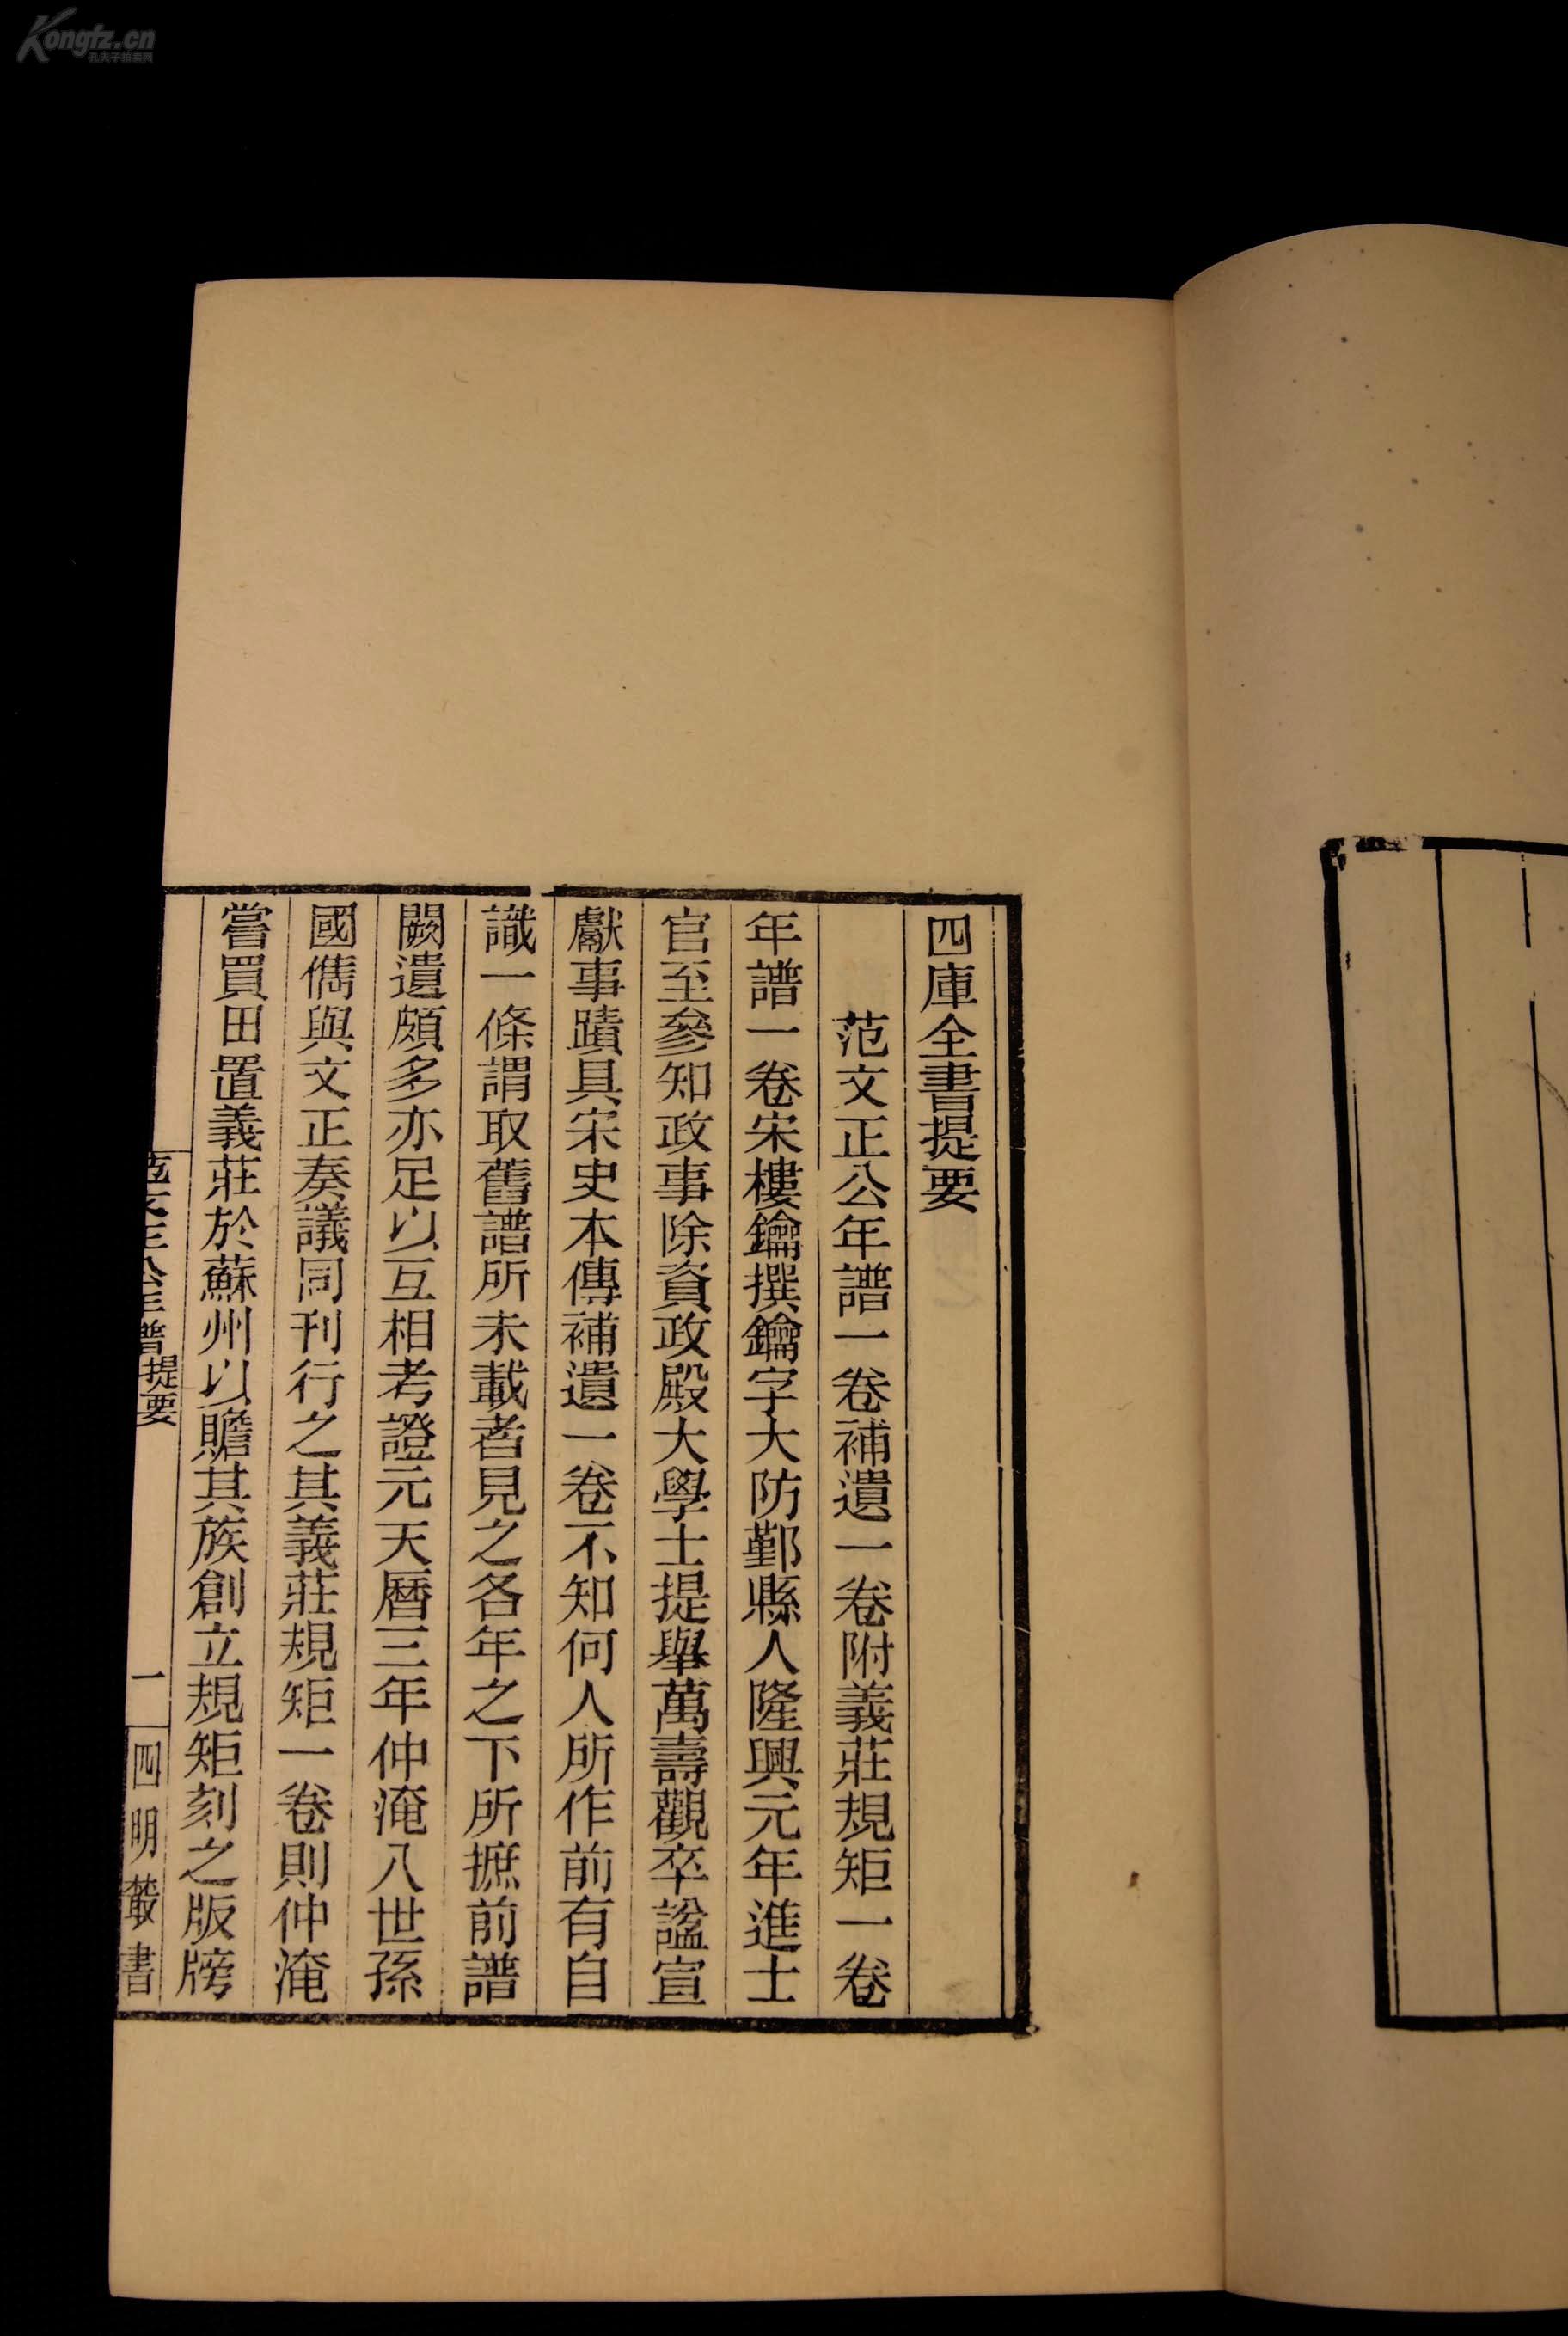 四庫全書提要
范文正公年譜一卷補遺一卷附義莊規矩一卷
年譜一卷宋樓鑰撰鑰字大防鄞縣人隆興元年進士
官至參知政事除資政殿大學士提舉萬壽觀卒諡宣
獻事蹟具宋史本傳補遺一卷不知何人所作前有自
識一條謂取舊譜所未載者見之各年之下所摭前譜
闕遺頗多亦足以互相考證元天曆三年仲淹八世孫
國儁與文正奏議同刊行之其義莊規矩一卷則仲淹
嘗買田置義莊於蘇州以贍其族創立規矩刻之版牓
范文正公年譜提要
一
四明叢書
Kongfz.cn
孔夫子拍卖网